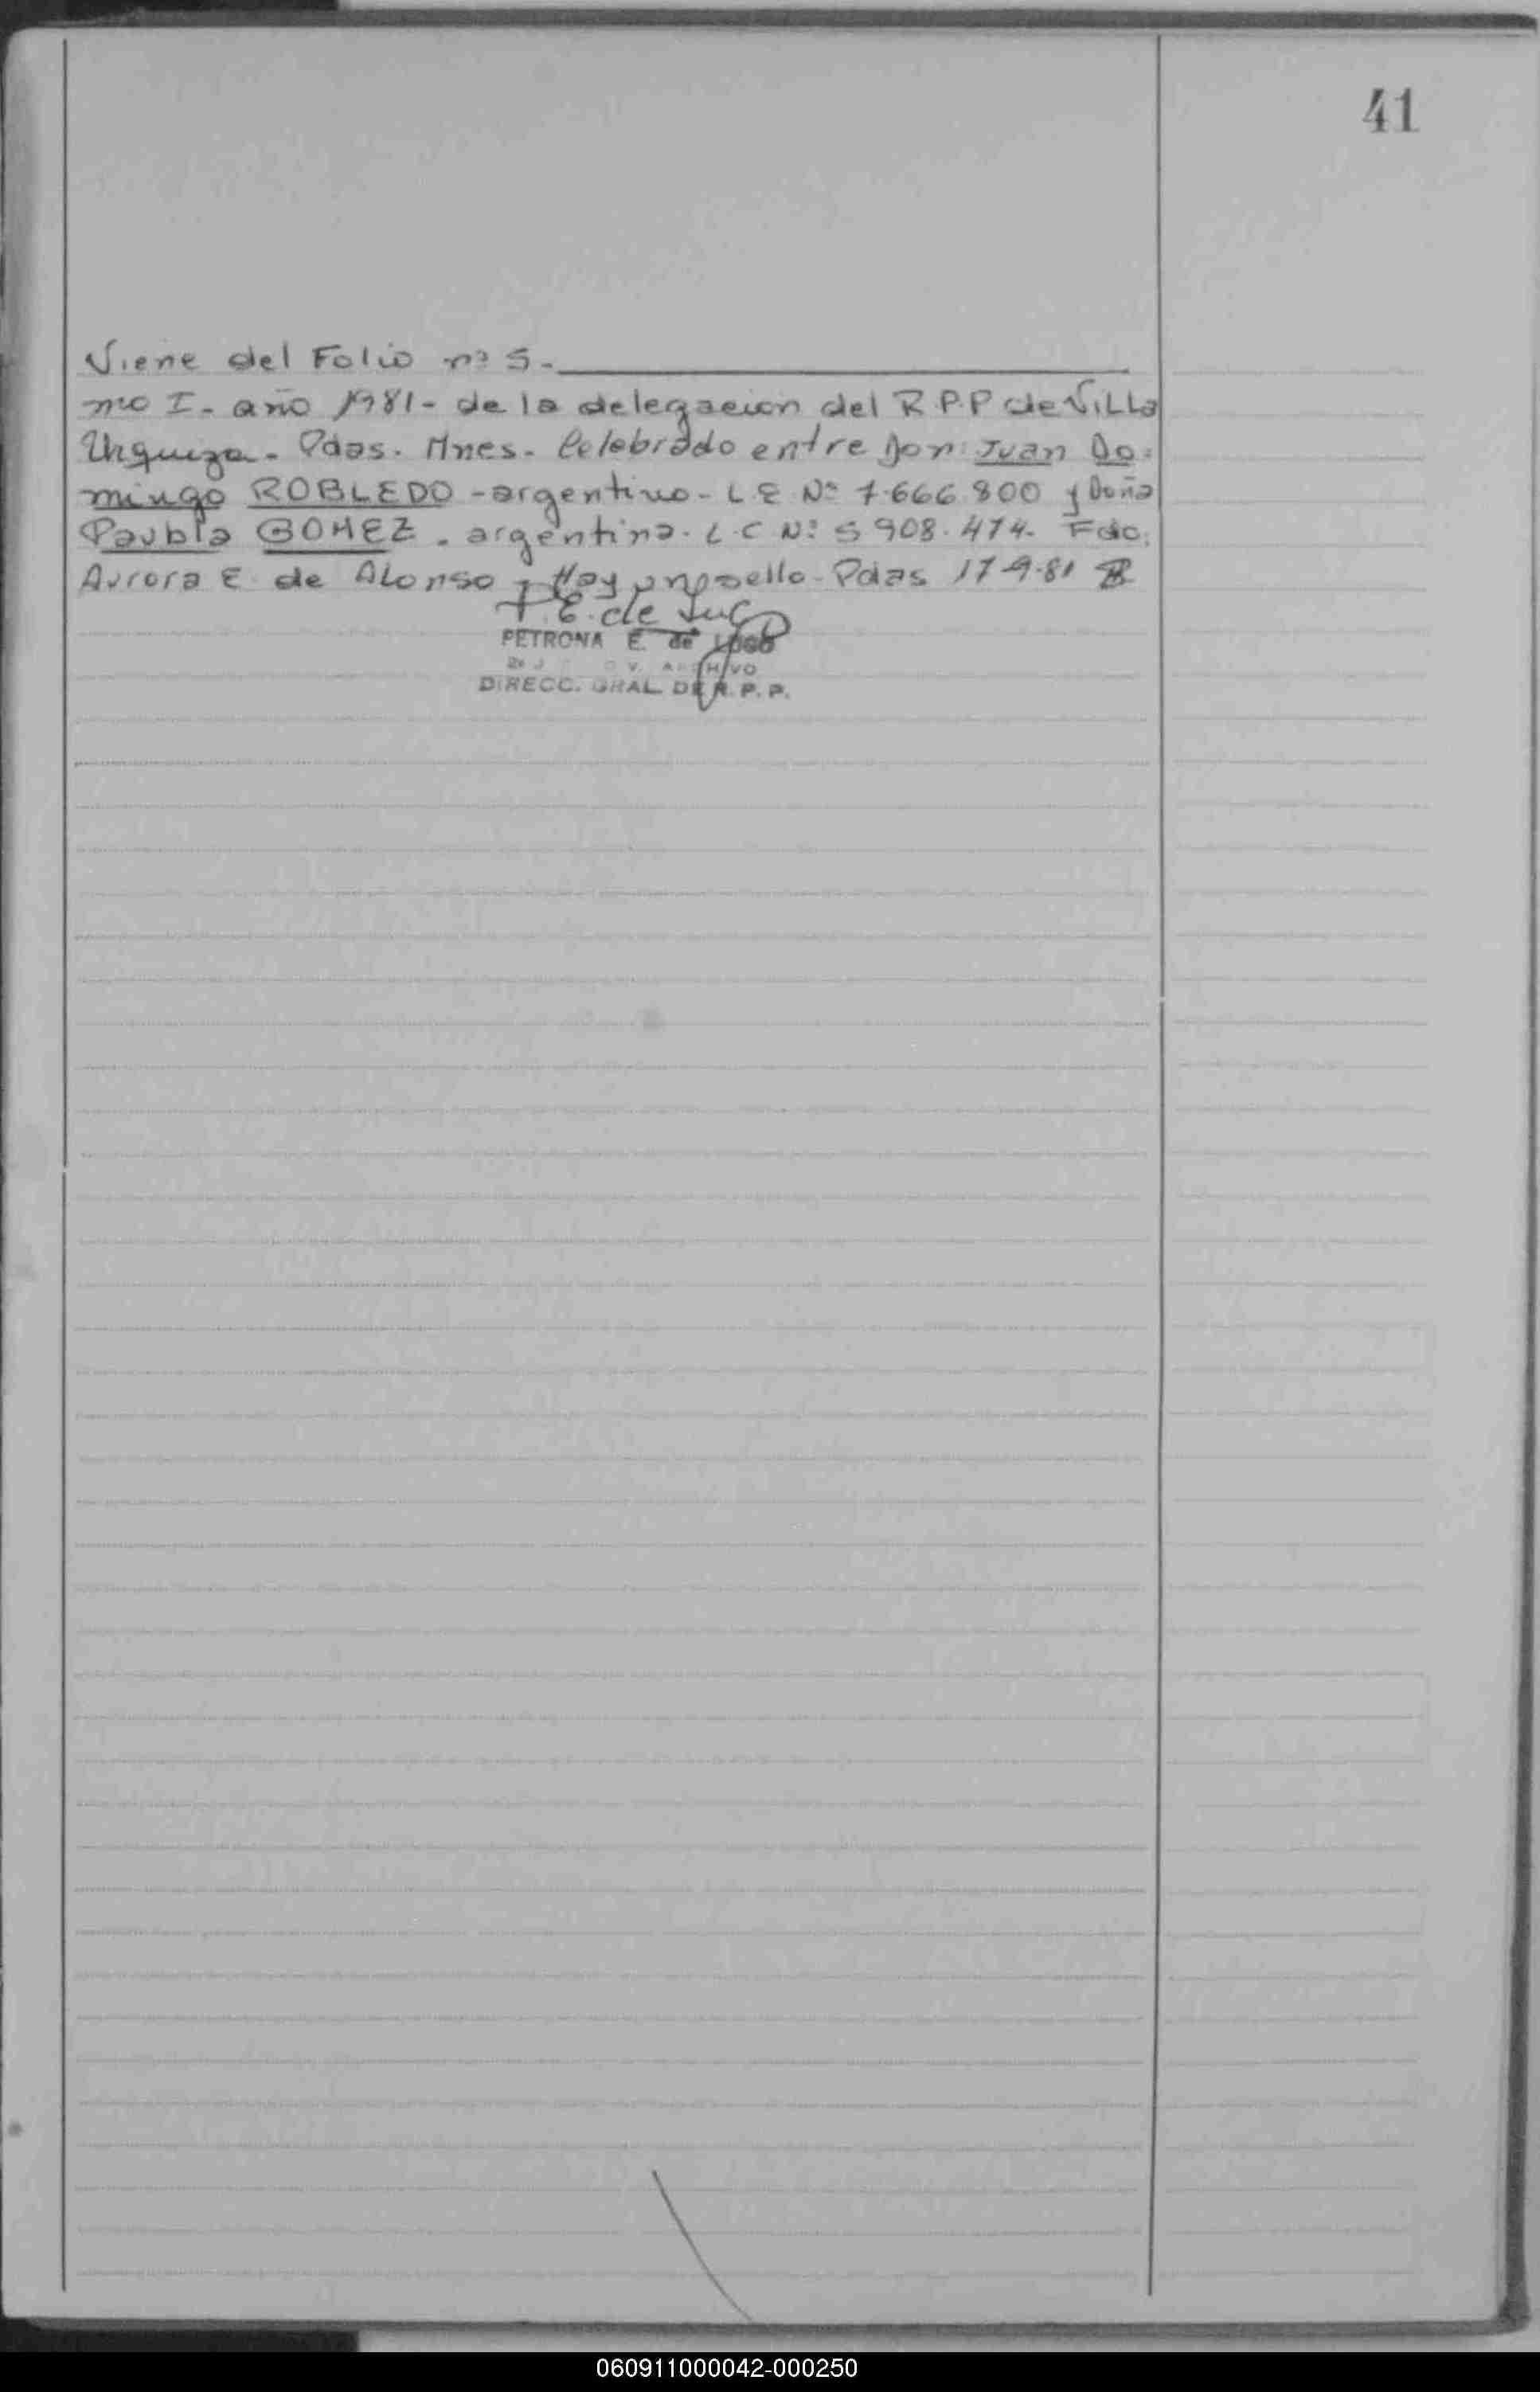 41
Viene del Folio nº 5.-
mo I - año 1981 - de la delegacion del R.P.P de Villa
Urquiza - Pdas. Mnes. Celebrado entre Don: Juan Do-
mingo ROBLEDO - argentino - L.E Nº 7.666.800 y Doña
Paubla GOMEZ . argentina. L.C Nº 5 908.474. Fdo.
Aurora E de Alonso - Hay un sello - Pdas 17-9-81
P. E. de
PETRONA E. de
V. ARCHIVO
DIRECC. GRAL DE R. P. P.
060911000042-000250